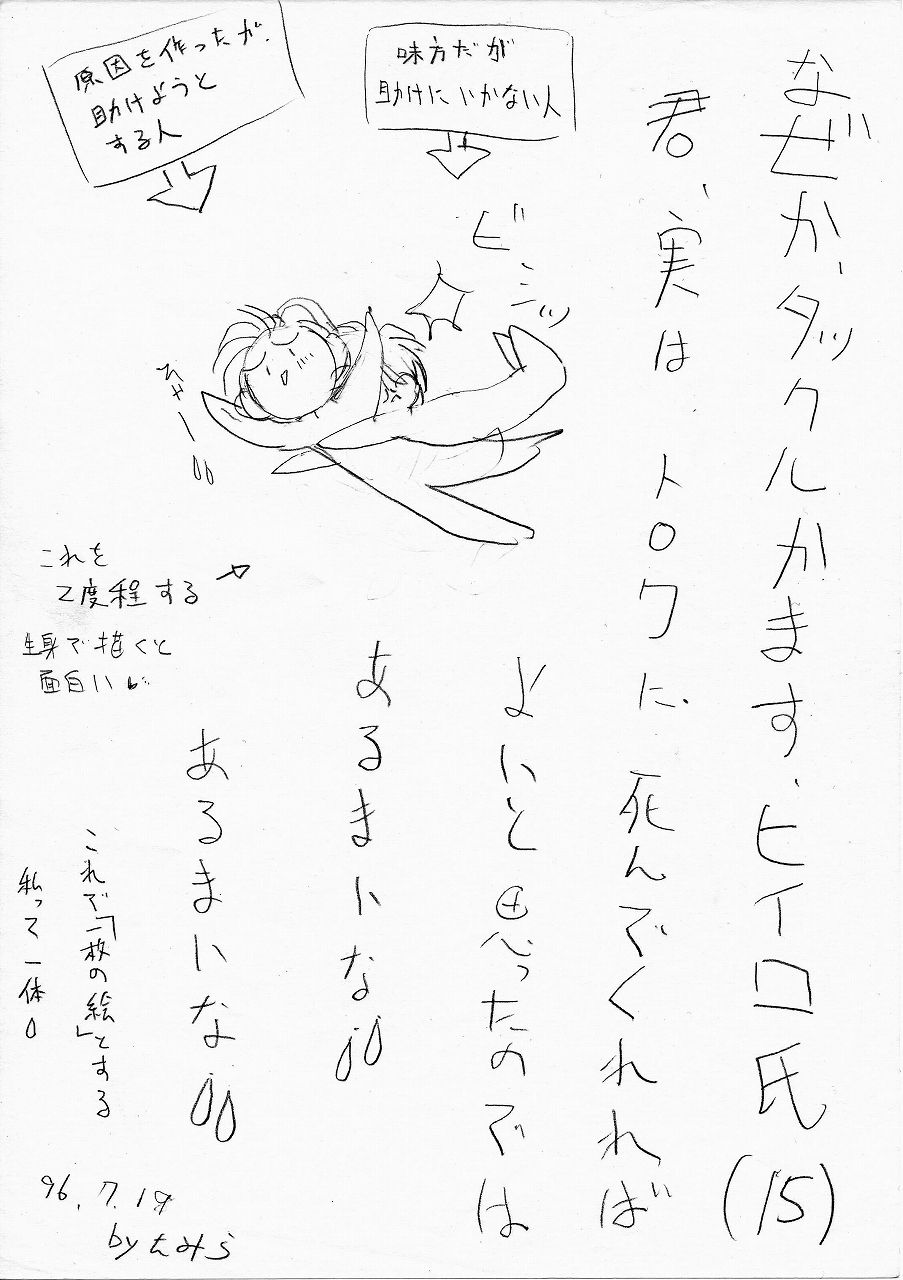 なぜか、タックルかます、ヒイロ氏(15)
君、実は、トロワに、死んでくれれば
よいと思ったのでは
あるまいな
あるまいな
原因を作ったが、
助けようと
する人
味方だが
助けにいかない人
ビシッ
これを
Z度程する
生身で描くと
面白い
これで「一枚の絵」とする
私って一体
96.7.19
by たみら